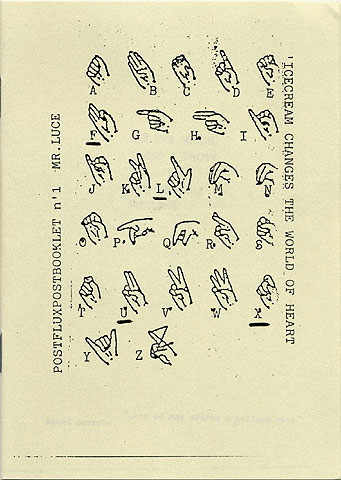 'ICECREAM CHANGES THE WORLD OF HEART
A B C D E
F G H I
J K L M N
O P Q R S
T U V W X
Y Z
POSTFLUXPOSTBOOKLET n°1 MR.LUCE